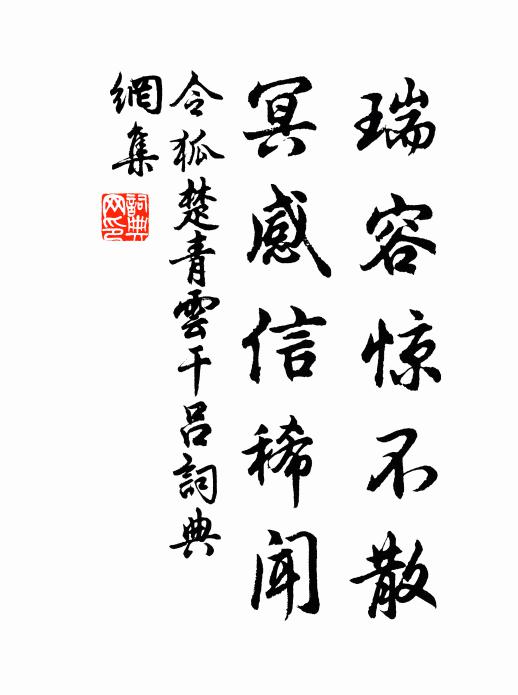 瑞容惊不散
冥感信稀闻
令狐楚青雲干呂詞典
網集
詞典
网印